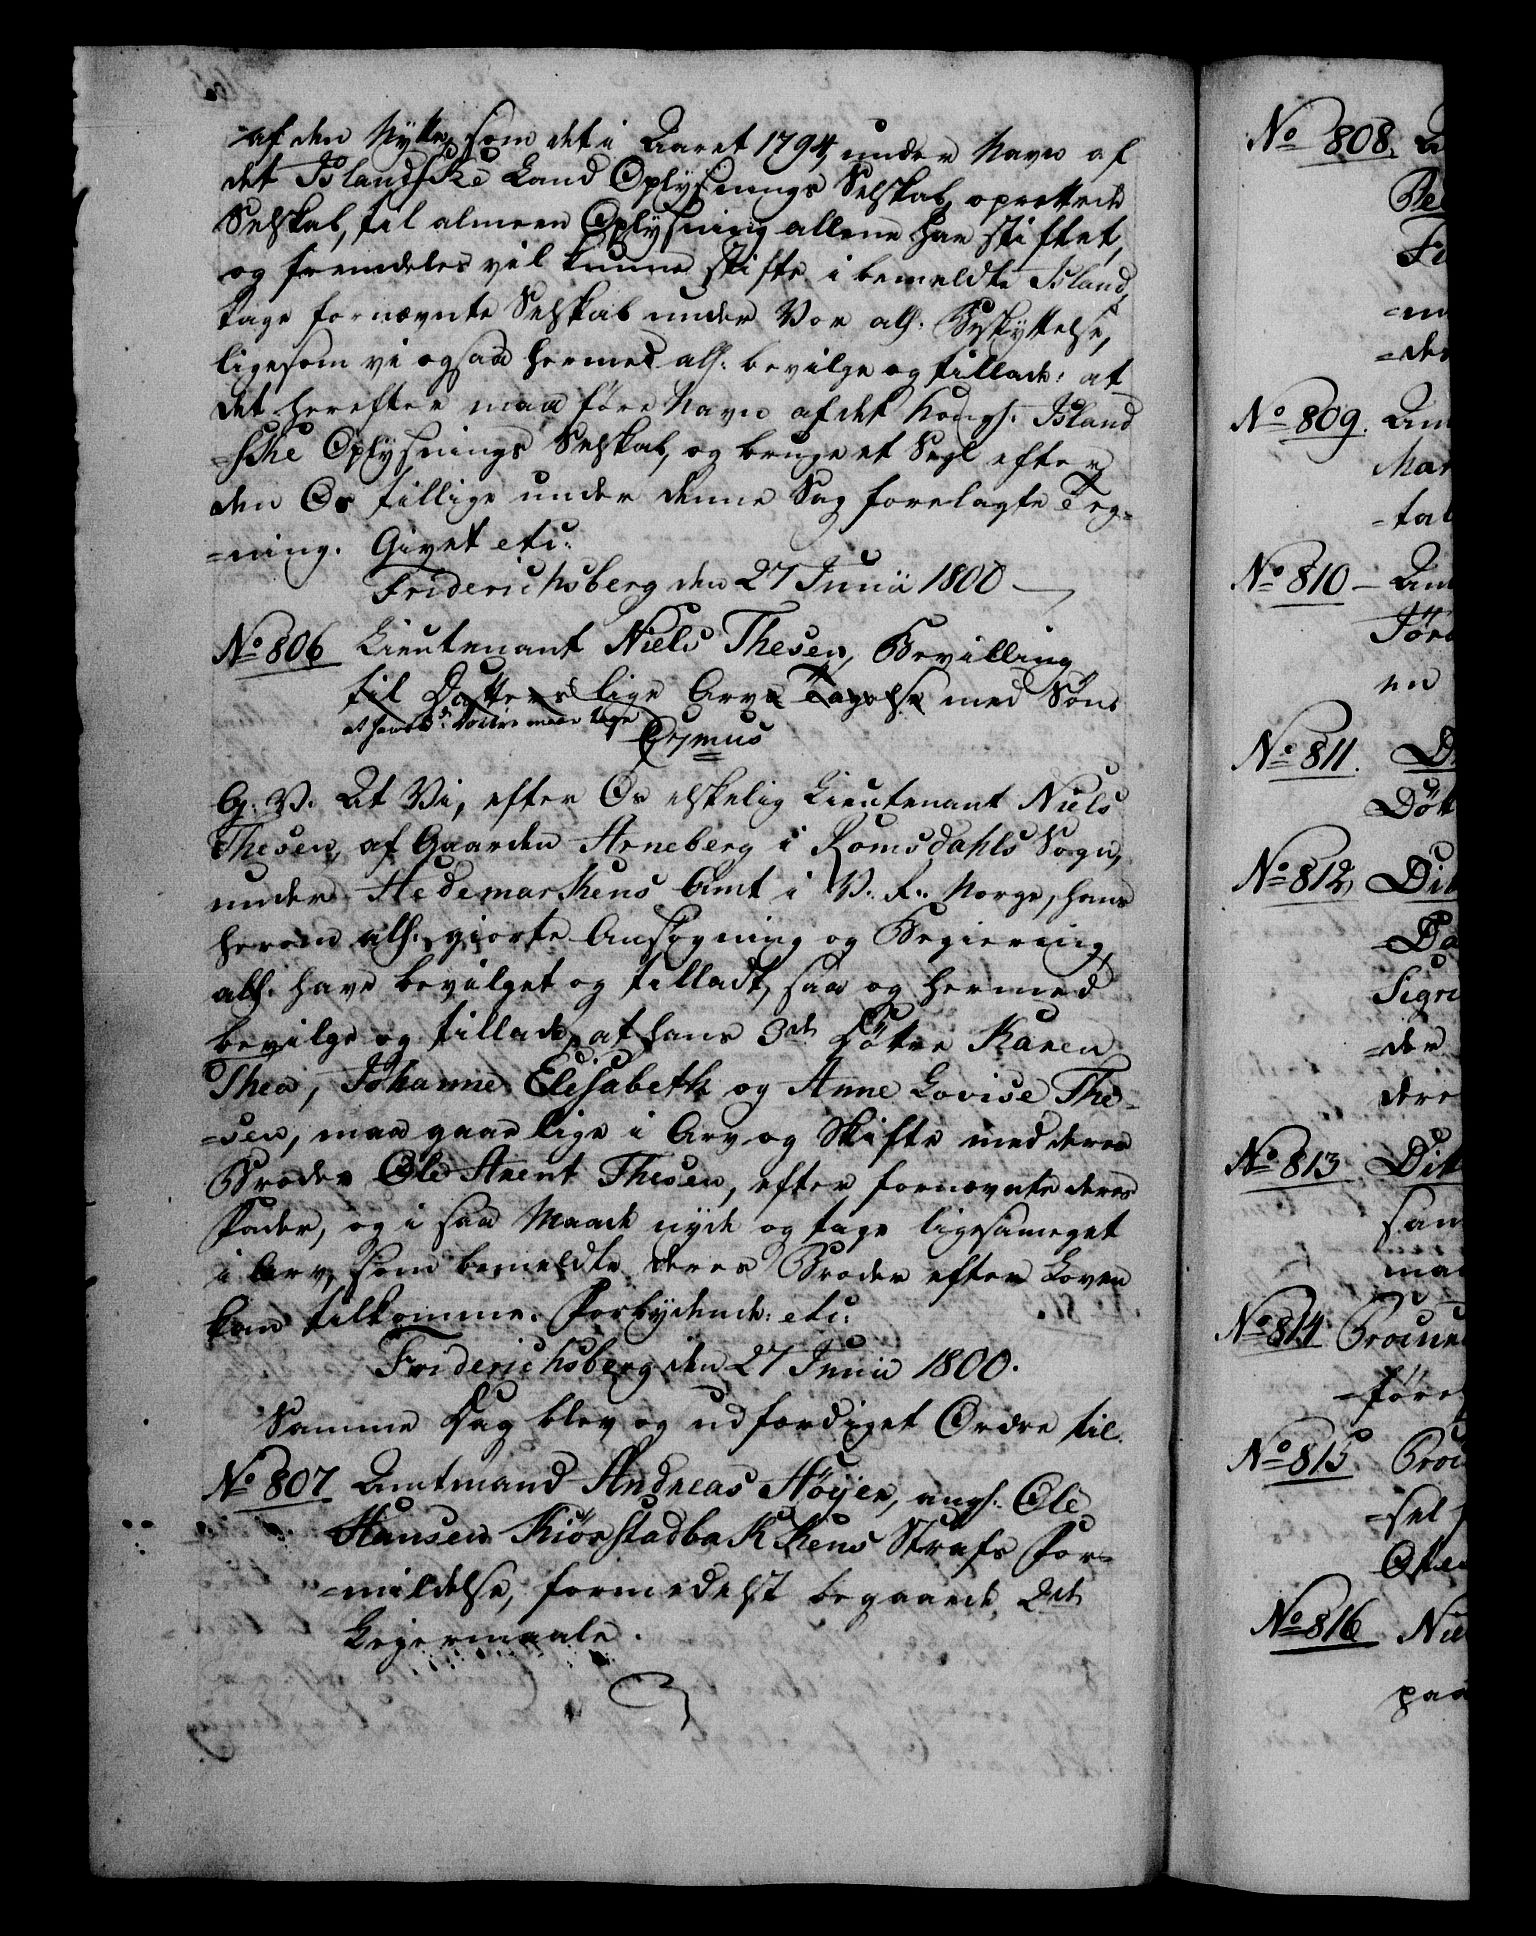 af den Nytte, som det i Aaret 1794 under Navn af
det Islandske Land Oplysnings Selskab, oprettede
Selskab, til almeen Oplysning allene har stiftet,
og fremdeles vil kunne stifte i bemeldte Island,
tage fornævnte Selskab under Vor alh. Beskyttelse,
ligesom vi ogsaa hermed alh. bevilge og tillade: at
det herefter maa före Navn af det Kongl. Island
=ske Oplysnings Selskab, og bruge et Segl efter
den Os tillige under denne Sag forelagte Teg=
=ning. Givet etc:
Friderichsberg den 27 Junii 1800
No 806 Lieutenant Niels Thesen, Bevilling
til Datters lige Arve Tagelse med Söns
at hans 3de Döttre maae tage
Erjmus
G. V. At Vi, efter Os elskelig Lieutenant Niels
Thesen, af Gaarden Arneberg i Romsdahls Sogn,
under Hedemarkens Amt i V. R. Norge, hans
herom alh. giorte Ansøgning og Begiering,
alh. have bevilget og tilladt, saa og hermed
bevilge og tillade, at hans 3de Döttre Karen
Thea, Johanne Elisabeth og Anne Lovise The=
=sen, maa gaae lige i Arv og Skifte med deres
Broder Ole Arent Thesen, efter fornævnte deres
Fader, og i saa Maade nyde og tage ligesameget
i Arv, som bemeldte deres Broder efter Loven
kan tilkomme. Forbydende: etc:
Friderichsberg den 27 Junii 1800.
Samme Dag blev og udfærdiget Ordre til
No 807 Amtmand Andreas Höyer, angl. Ole
Hansen Kiörstadbakkens Straffs For=
=mildelse, formedelst begaaede 2de
Leiermaale.
No 808.
No 809.
Mar
=tal
No 810
Jörg
en
No 811.
Döt
No 812
Sigri
=der
dere
No 813 Dit
sam
maa
No 814
=före
No 815
=sel
No 816
paa